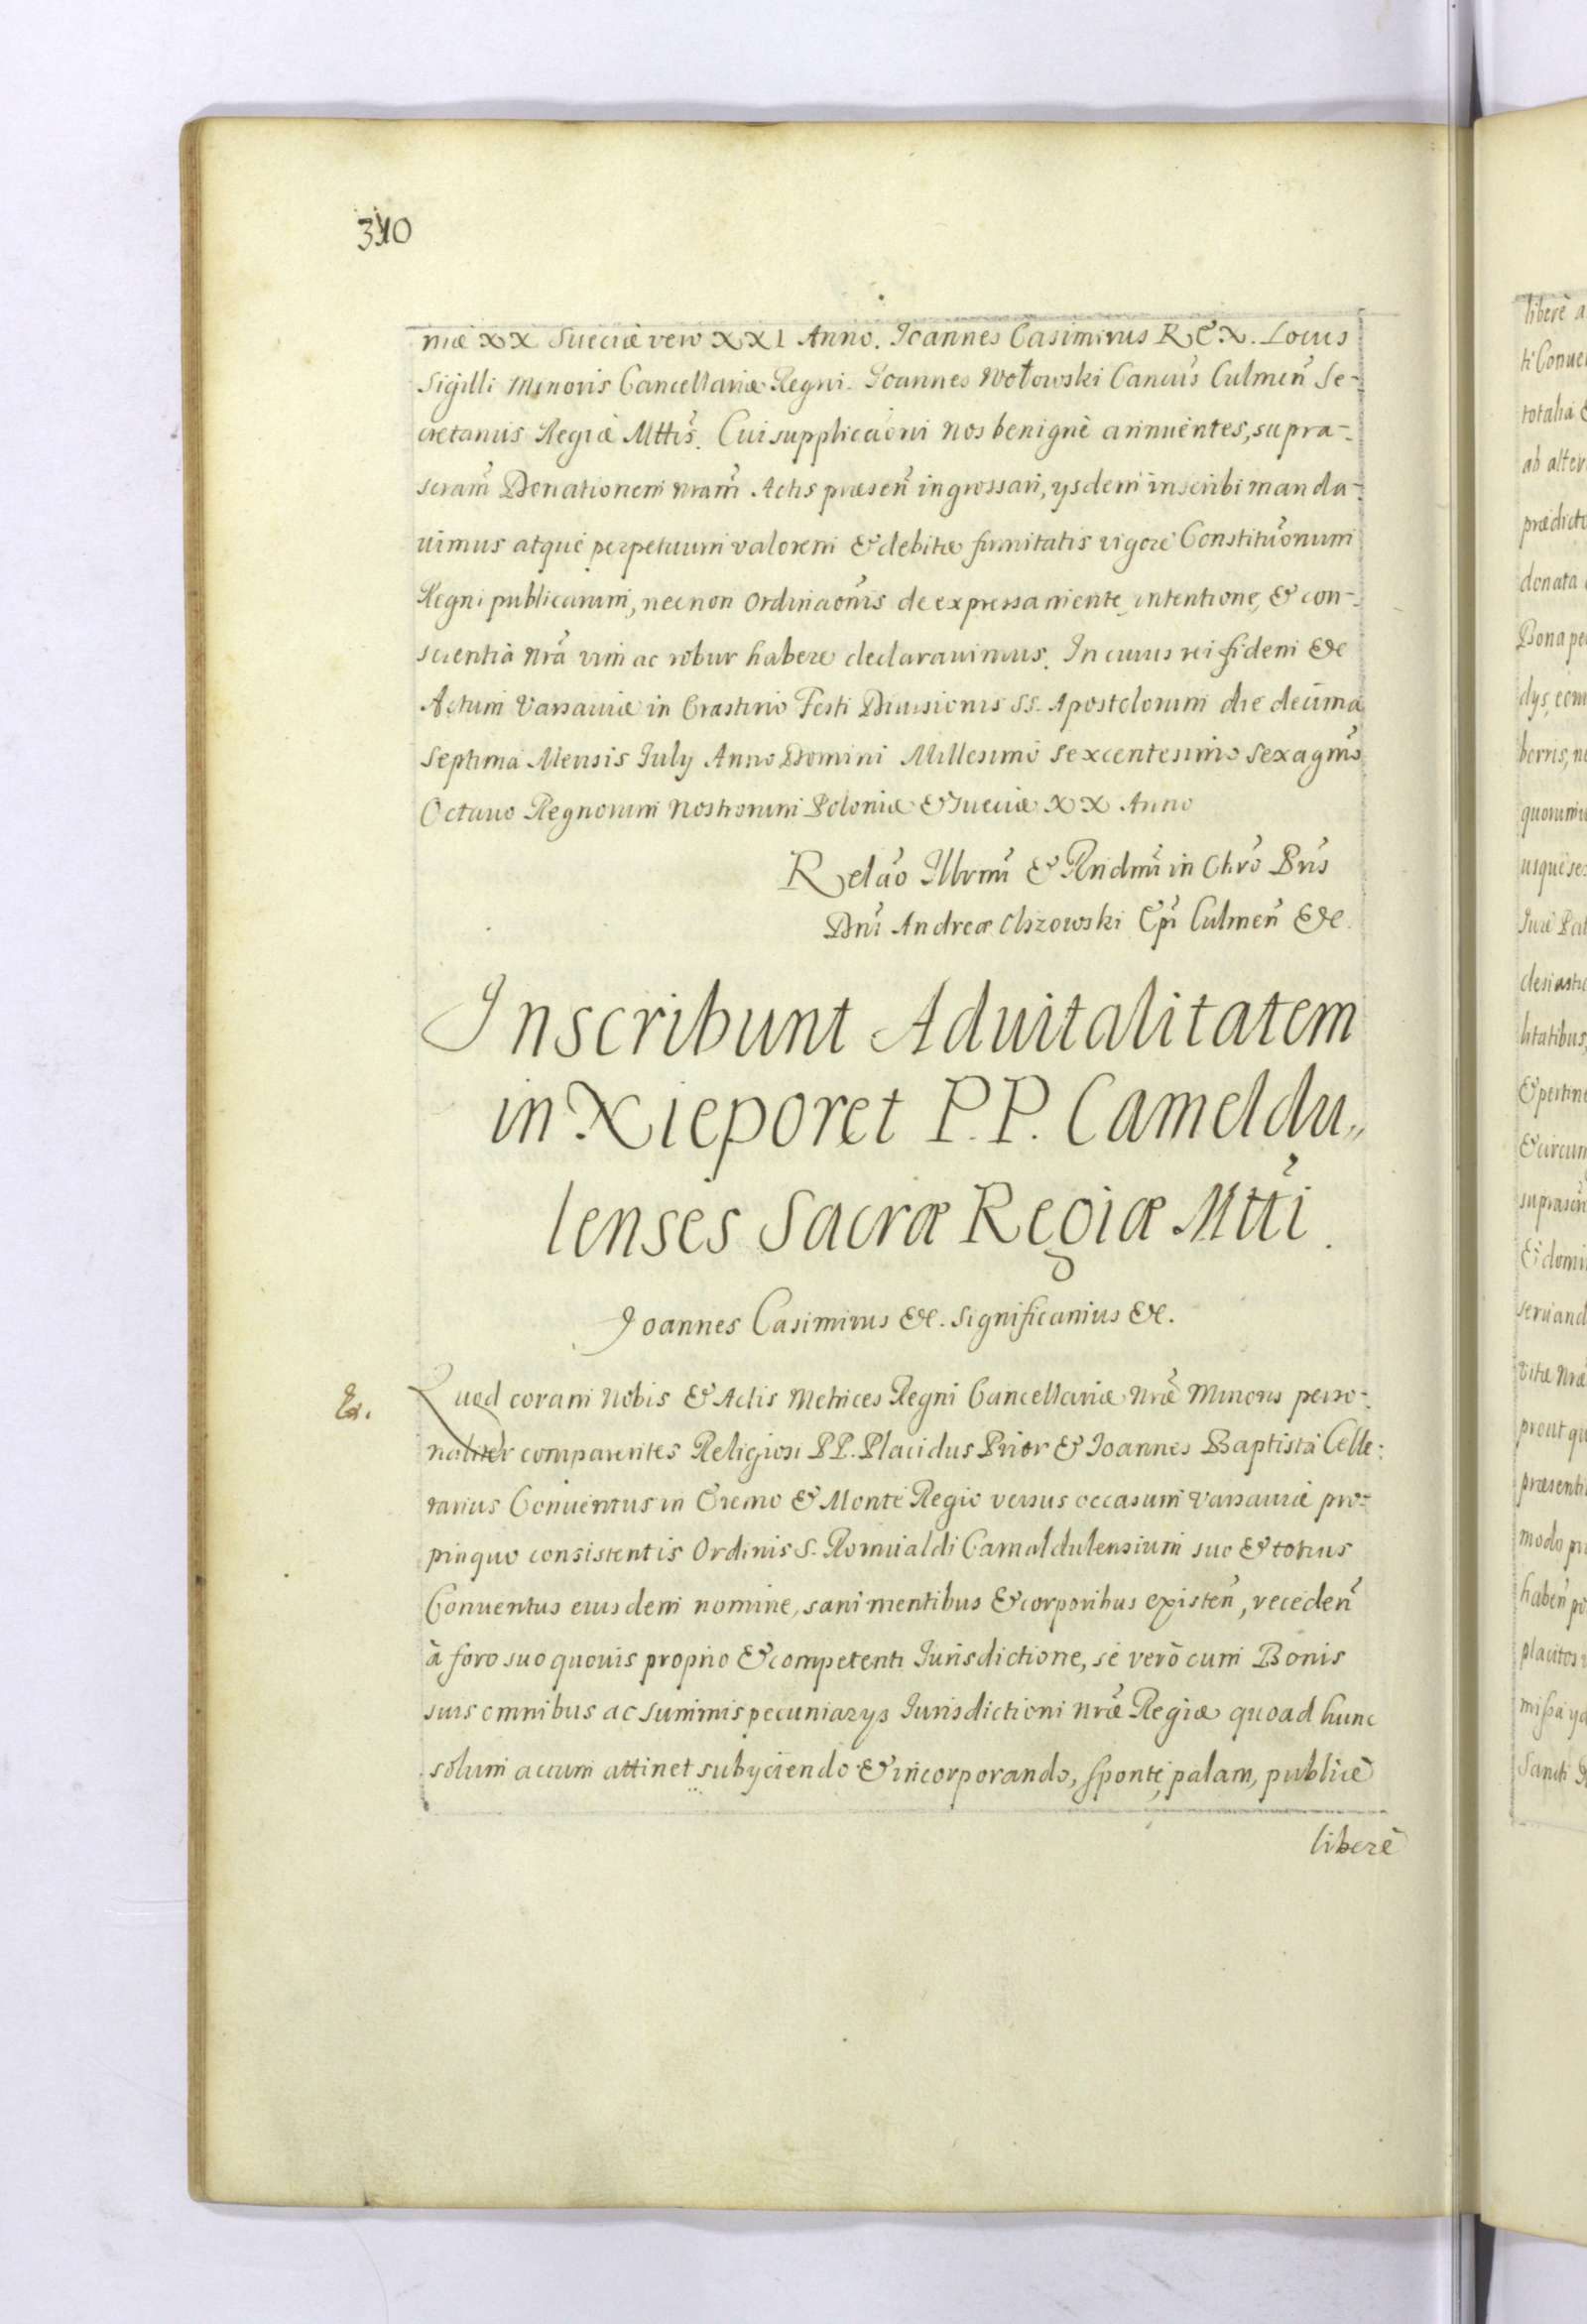 340
niæ XX Sueciæ vero XXI Anno. Joannes Casimirus REX. Locus
Sigilli Minoris Cancellariæ Regni. Joannes Wołowski Cancũs Culmeñ Se-
cretarius Regiæ Mttis̃. Cui supplicaõni nos benignè annuentes, supra-
scram̃ Donationem nram̃ Actis præseñ ingrossari, ysdem inscribi manda-
uimus atque perpetuum valorem & debitæ firmitatis vigore Constituõnum
Regni publicarum, necnon Ordinaõnis de expressa mente, intentione, & con-
scientia nrã vim ac robur habere declarauimus. In cuius rei fidem &c
Actum Varsauiæ in Crastino Festi Diuisionis SS. Apostolorum die decima
Septima Mensis July Anno Domini Millesimo Sexcentesimo Sexagm̃o
Octauo Regnorum Nostrorum Poloniæ & Sueciæ XX Anno
Relaõ Illvrmi̇̃ & Rndmi̇̃ in Chrõ Pris̃
Dni̇̃ Andreæ Olszowski Epi̇̃ Culmeñ &c.
Inscribunt Aduitalitatem
in Xieporet P.P. Cameldu„
lenses Sacræ Regiæ Mtti̇̃.
Joannes Casimirus &c. Significamus &c.
Quod coram Nobis & Actis Metrices Regni Cancellariæ nræ̃ Minoris perso-
naliter comparentes Religiosi PP. Placidus Prior & Joannes Baptista Celle-
rarius Conuentus in Eremo & Monte Regio versus occasum Varsauiæ pro-
pinquo consistentis Ordinis S. Romualdi Camaldulensium suo & totius
Conuentus eiusdem nomine, sani mentibus & corporibus existeñ, recedeñ
à foro suo quouis proprio & competenti Jurisdictione, se verò cum Bonis
suis omnibus ac summis pecuniarys Jurisdictioni nræ̃ Regiæ quoad hunc
solum actum attinet subyciendo & incorporando, sponte, palam, publicè
liberè